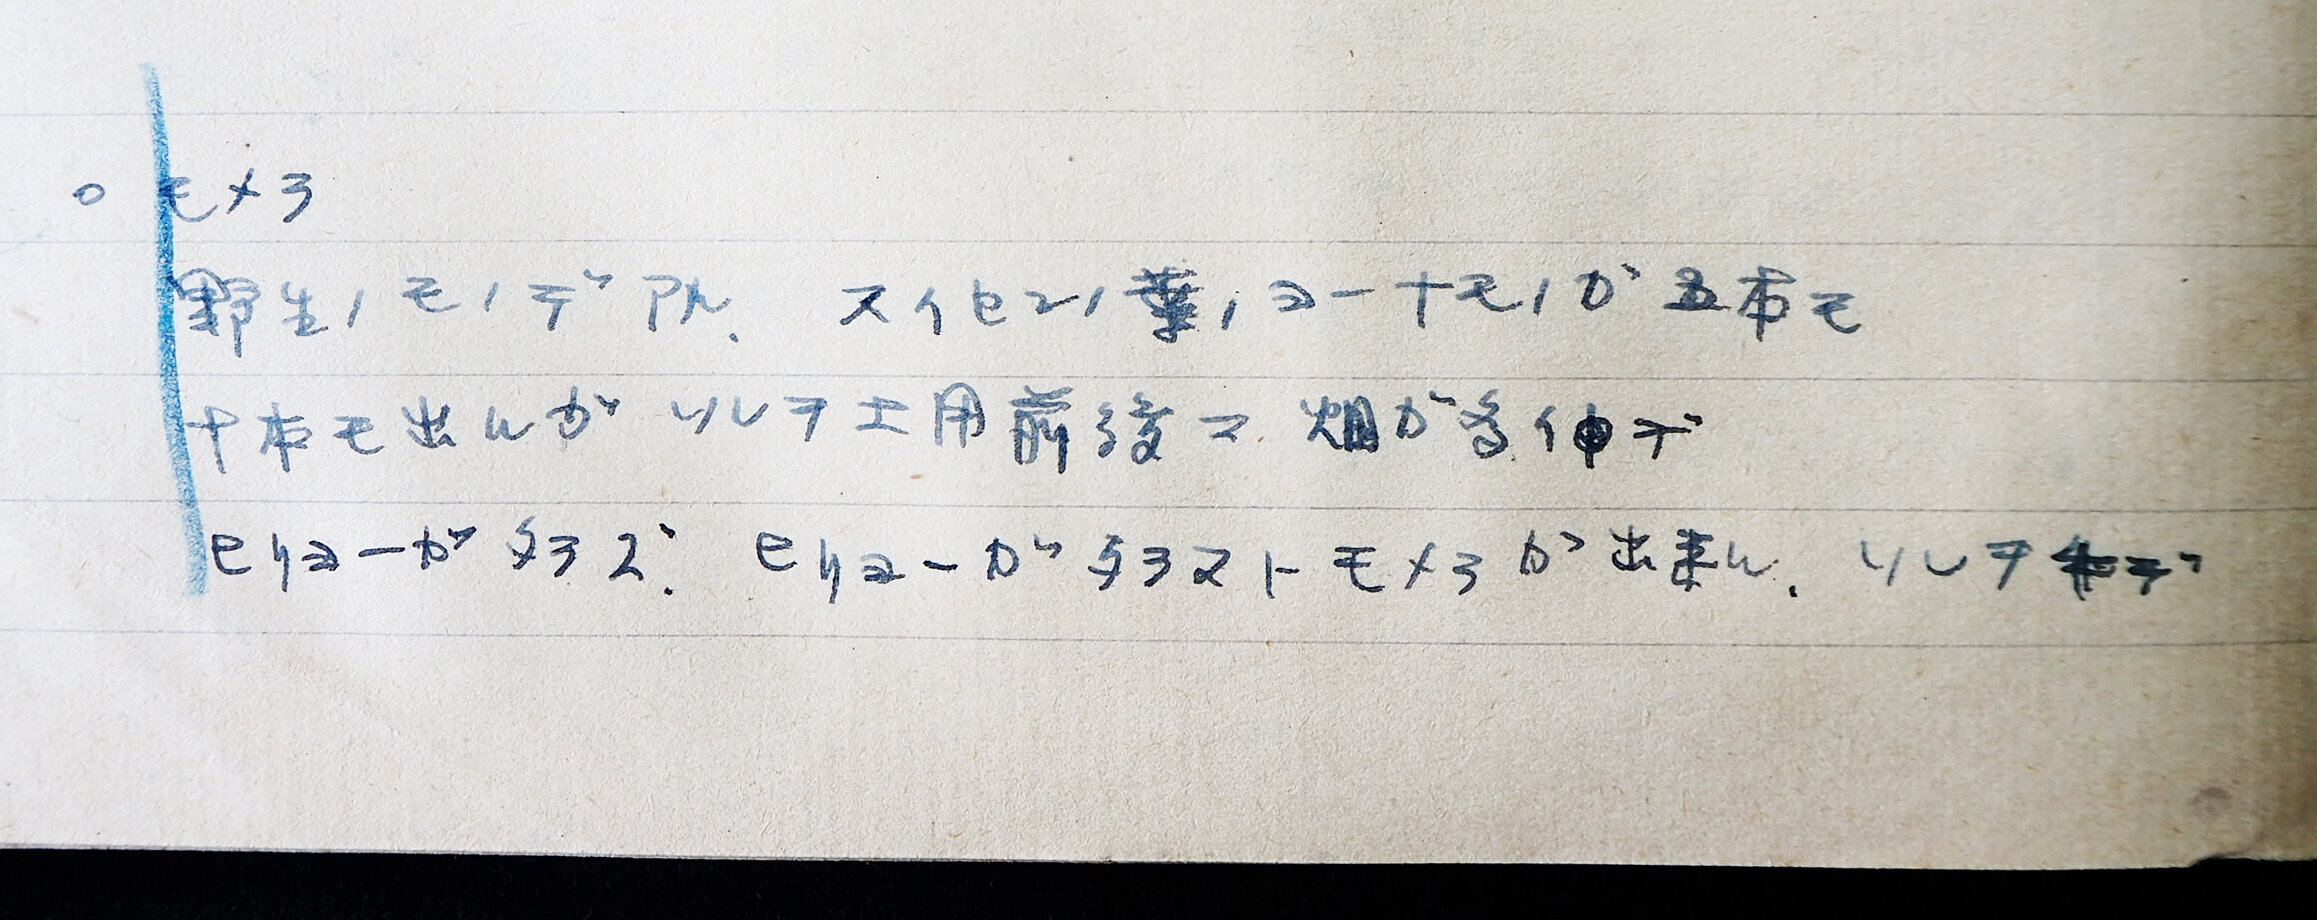 ○ モメラ
野生ノモノデアル. スイセンノ葉ノヨーナモノガ五本モ
十本モ出ルガ ソレヲ土用前後マ 畑が多イ中デ
ヒリョーガタラズ. ヒリョーガタラヌトモメラガ出来ル. ソレヲ